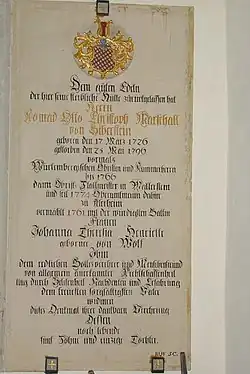 Dem edlen Edeln
der hier seine sterbliche Hülle zurückgelassen hat
Herrn
Konrad Otto Christoph Marschall
von Ostheim
geboren den 17 März 1726
gestorben den 25 Mai 1796
vormals
Würtembergischen Obristen und Kammerherrn
bis 1766
dann Obrist Stallmeister zu Wallerstein
und seit 1774 Oberamtmann dahier
zu Alerheim
vermählt 1761 mit der würdigsten Gattin
Frauen
Johanna Henriette
geborner von Wolf
Ihm
dem redlichen Gottesverehrer und Menschenfreund
von allgemein anerkannter Rechtschaffenheit
und durch Nachdenken und Erfahrung
dem treuesten sorgfältigsten Vater
widmen
dies Denkmal ihrer dankbaren Verehrung
Dessen
noch lebende
fünf Söhne und einzige Tochter
SC.